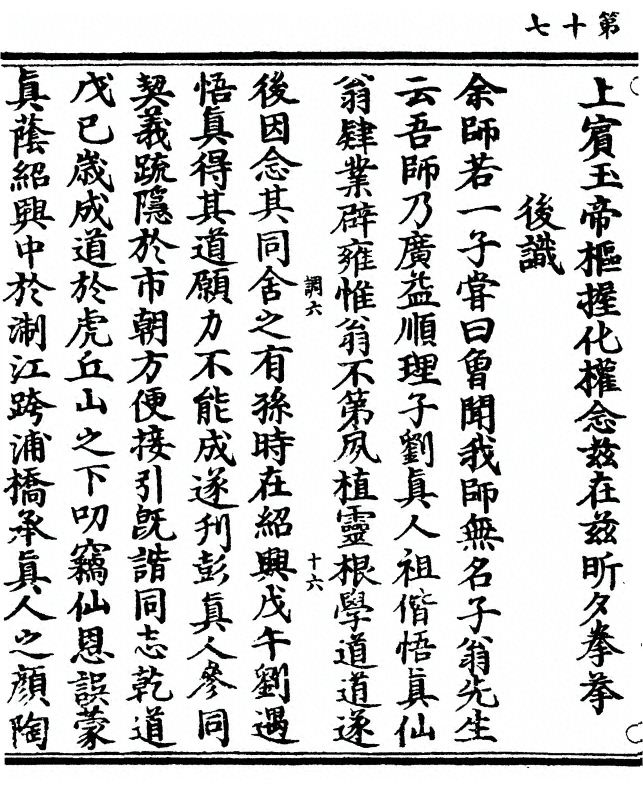 第十七
上賓玉帝樞握化權念兹在兹昕夕拳拳
後識
余師若一子嘗曰曾聞我師無名子翁先生
云吾師乃廣益順理子劉真人祖偕悟真仙
翁肄業辟雍惟翁不第夙植靈根學道道遂
調六
十六
後因念其同舍之有孫時在紹興戊午劉遇
悟真得其道願力不能成遂刋彭真人參同
契義䟽隱於市朝方便接引旣諧同志乾道
戊巳歳成道於虎丘山之下叨竊仙恩誤蒙
真蔭紹興中於淛江跨浦橋承真人之顔陶